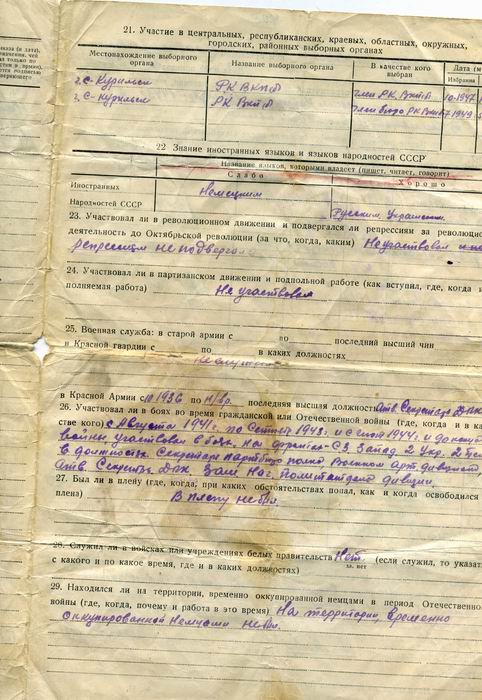 каза (в дата),
21. Участие в центральных, республиканских, краевых, областных, окружных,
городских, районных выборных органах
Местонахождение выборного органа
Название выборного органа
В качестве кого выбран
Дата (м
Избрания
г. С-Курильск
РК ВКП(б)
член РК ВКП(б)
10-1947
г. С-Курильск
РК ВКП(б)
член бюро РК ВКП(б)
1949
22 Знание иностранных языков и языков народностей СССР
Название языков, которыми владеет (пишет, читает, говорит)
Слабо
Хорошо
Иностранных
Немецким
Народностей СССР
Русским, Украинским
23. Участвовал ли в революционном движении и подвергался ли репрессиям за революцио
деятельность до Октябрьской революции (за что, когда, каким) Не участвовал и
репрессии не подвергал
24. Участвовал ли в партизанском движении и подпольной работе (как вступил, где, когда и
полняемая работа) Не участвовал
25. Военная служба: в старой армии с по последний высший чин
в Красной гвардии с по в каких должностях
не служил
в Красной Армии с 10 1936 по н/вр. последняя высшая должность Отв. Секретарь
26. Участвовал ли в боях во время гражданской или Отечественной войны (где, когда и в ка
стве кого) с Августа 1941 г. по Сентябр 1943. и с 1944 г. и до конца
войны участвовал в боях. На фронтах - СЗ, Запад 2 Укр. 2
в должностях. Секретаря партбюро полка, Военком арт. дивизиона,
Отв Секретарь Зам Нач. Политотдела дивизии.
27. Был ли в плену (где, когда, при каких обстоятельствах попал, как и когда освободился
плена) В плену не был.
28. Служил ли в войсках или учреждениях белых правительств Нет. (если служил, то указат
да, нет
с какого и по какое время, где и в каких должностях)
29. Находился ли на территории, временно оккупированной немцами в период Отечественно
войны (где, когда, почему и работа в это время) На территории, временно
оккупированной немцами не был.